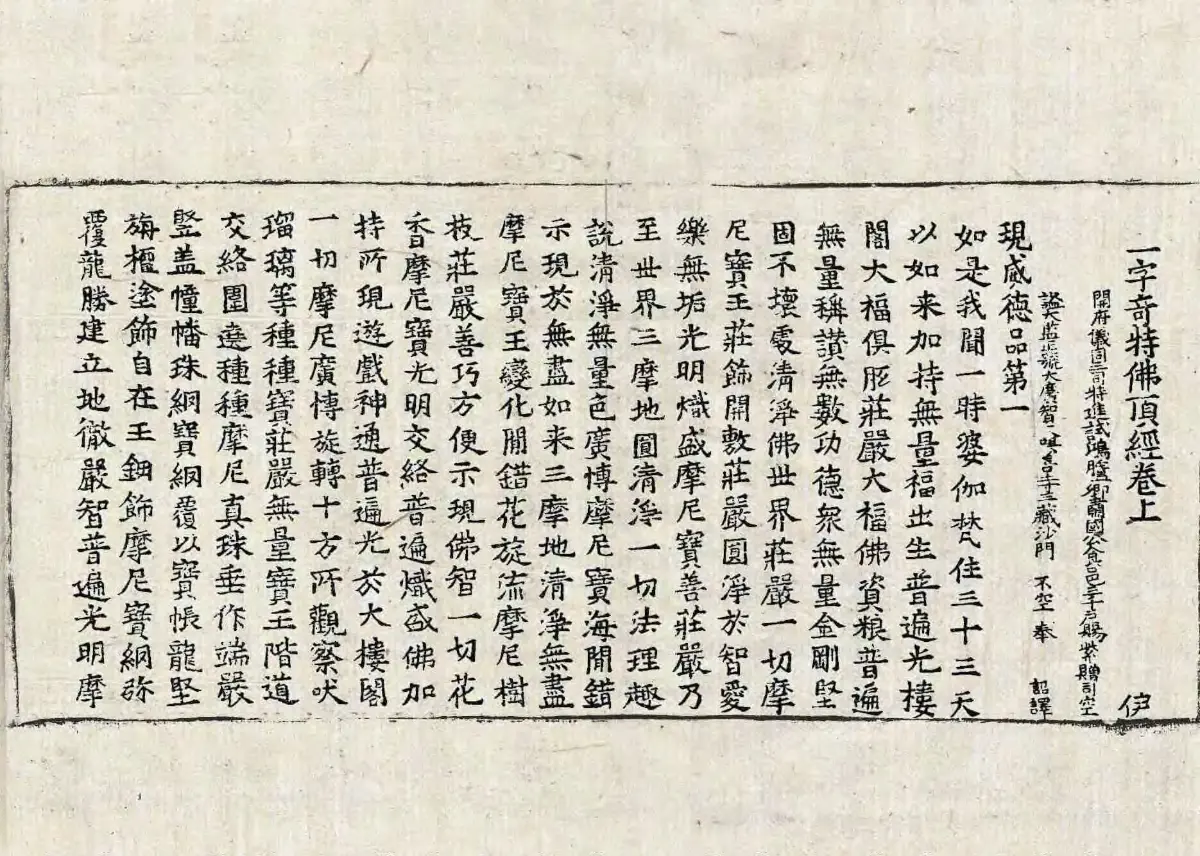 一字奇特佛頂經卷上 伊
開府儀同三司特進試鴻臚卿肅國公食邑三千戶賜紫贈司空
謚大鑒正號大廣智大興善寺三藏沙門 不空奉 詔譯
現威德品第一
如是我聞一時婆伽梵住三十三天
以如来加持無量福出生普遍光樓
閣大福俱胝莊嚴大福佛資粮普遍
無量稱讃無數功德衆無量金剛堅
固不壞處清淨佛世界莊嚴一切摩
尼寶王莊飾開敷莊嚴圓淨於智愛
樂無垢光明熾盛摩尼寶善莊嚴乃
至世界三摩地圓清淨一切法理趣
說清淨無量色廣博摩尼寶海閒錯
示現於無盡如来三摩地清淨無盡
摩尼寶王變化閒錯花旋流摩尼樹
枝莊嚴善巧方便示現佛智一切花
香摩尼寶光明交絡普遍熾盛佛加
持所現遊戲神通普遍光於大樓閣
一切摩尼廣博旋轉十方所觀察吠
瑠璃等種種寶莊嚴無量寶王階道
交絡圍遶種種摩尼真珠垂作端嚴
竪盖幢幡珠網寶網覆以寳帳龍堅
旃檀塗飾自在王鈿飾摩尼寶網弥
覆龍勝建立地徹嚴智普遍光明摩